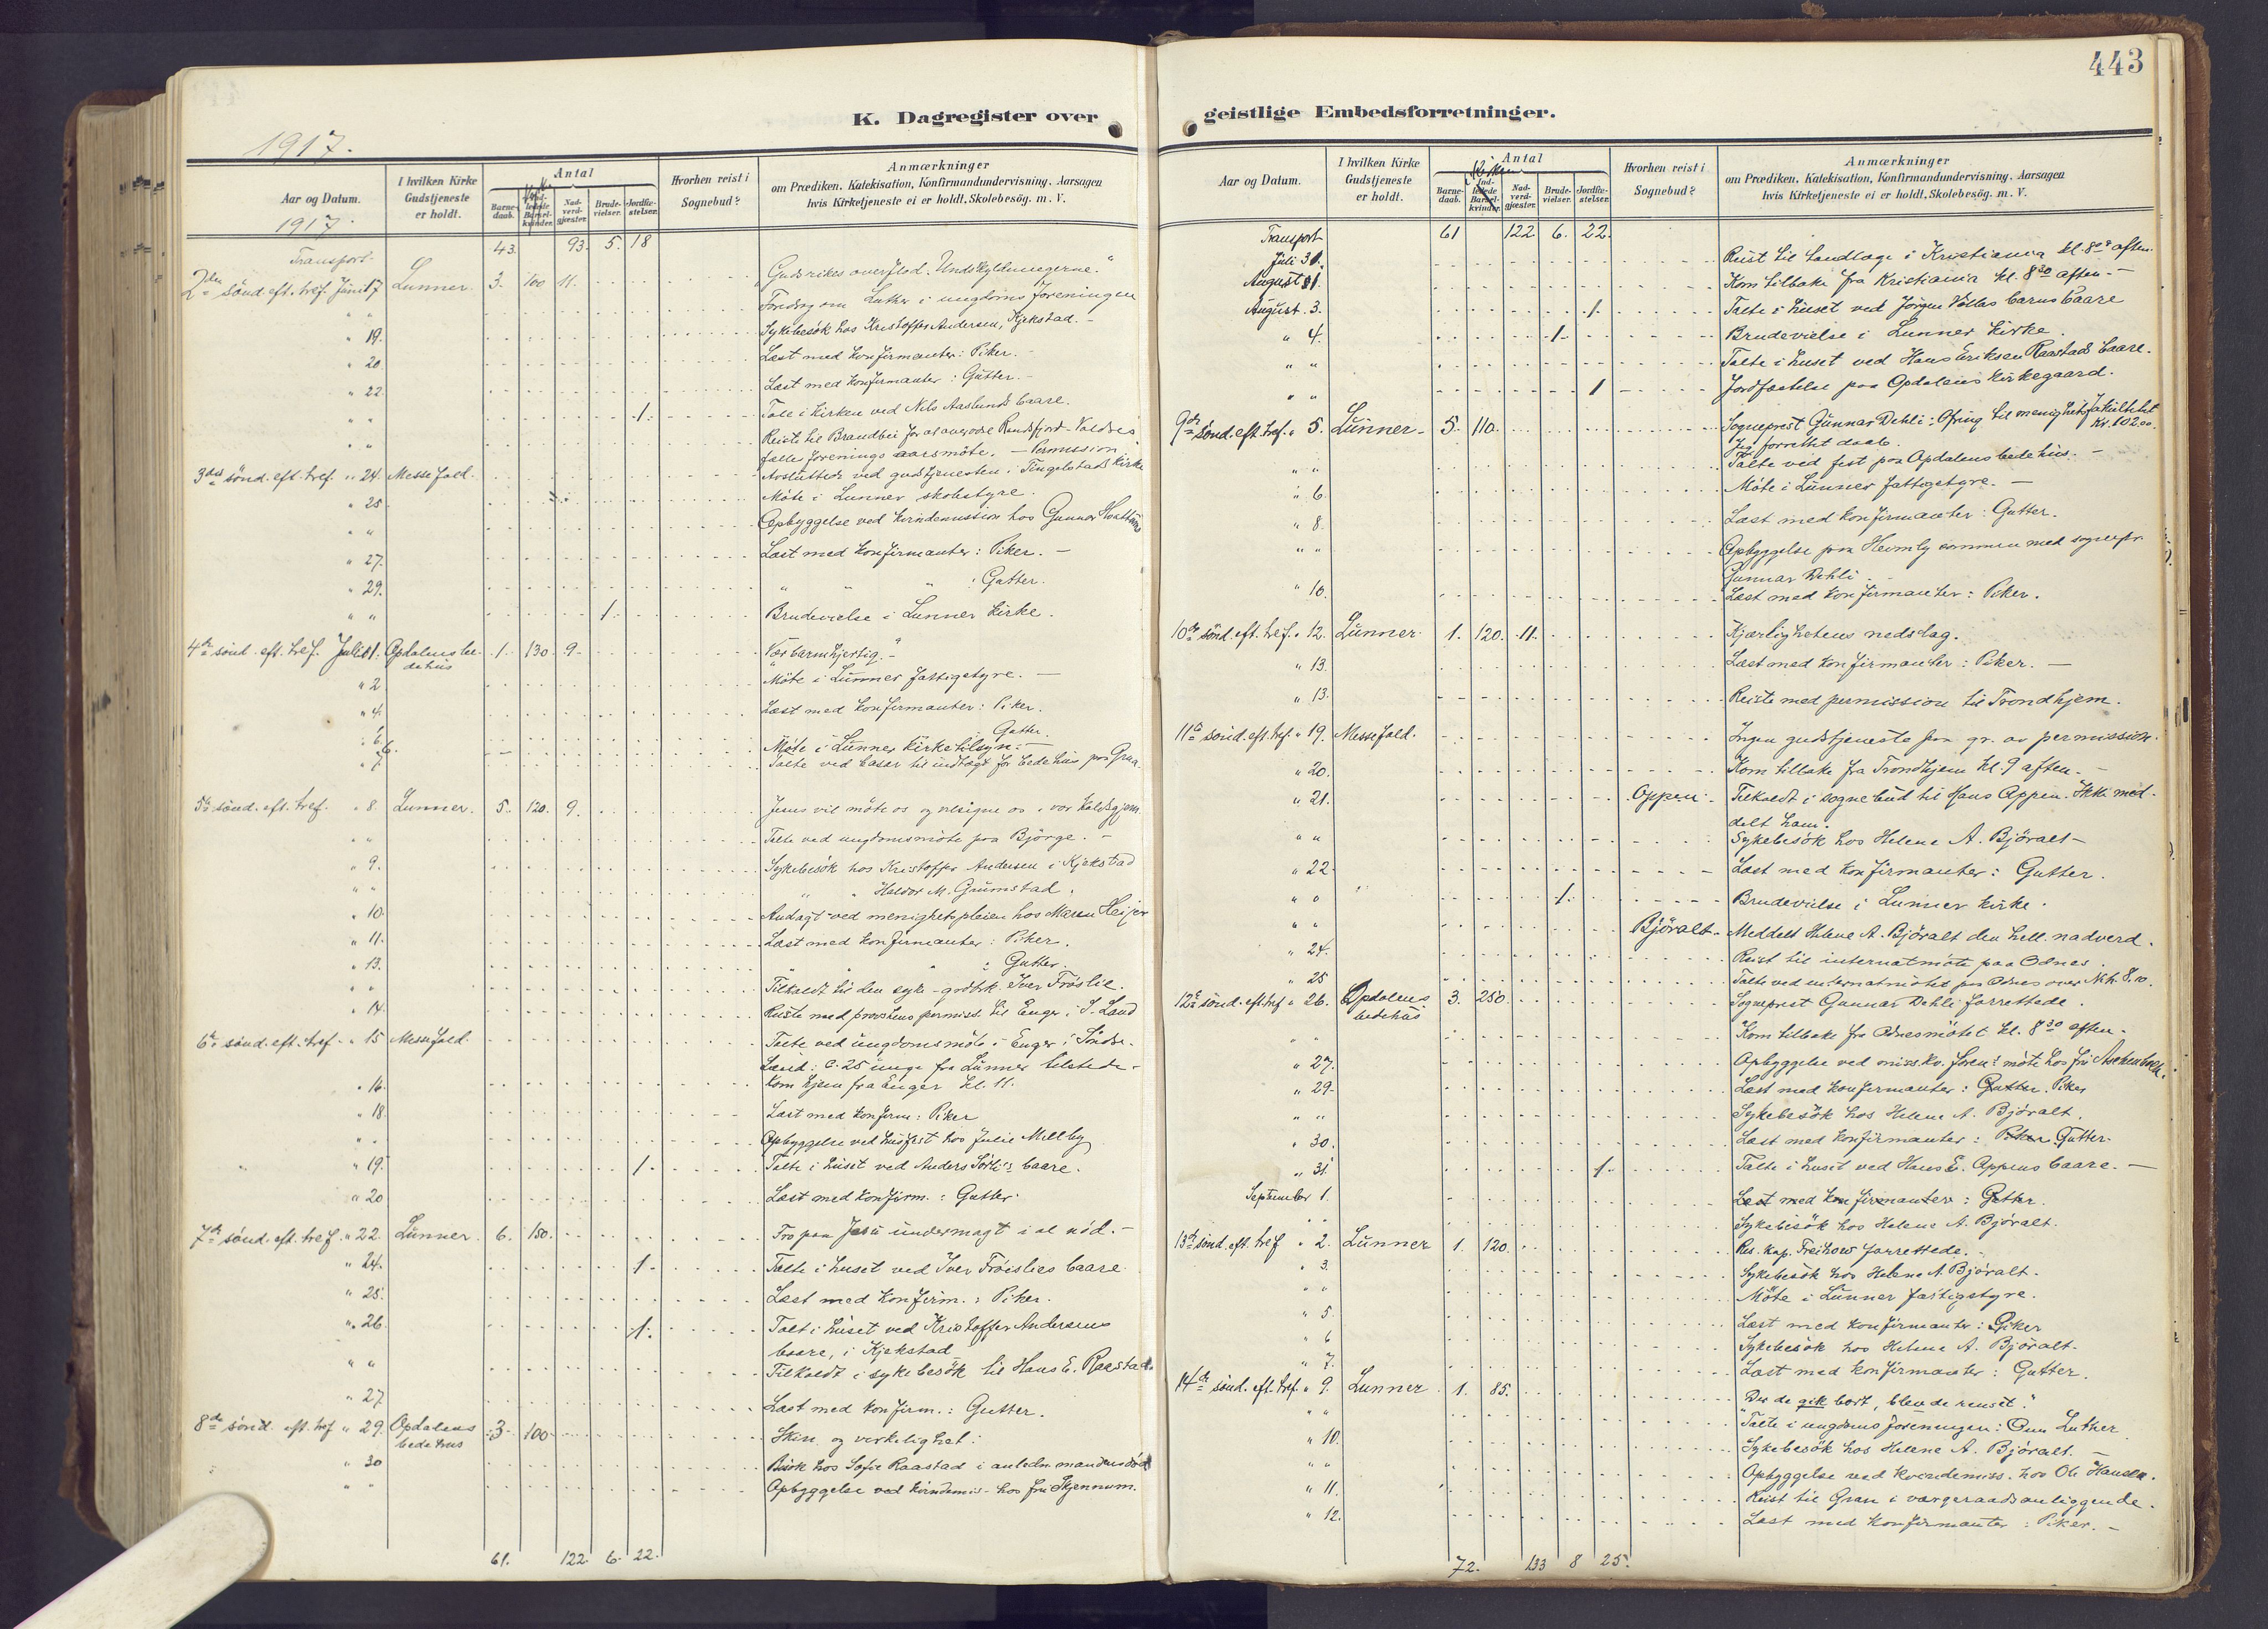 443
K. Dagregister over
geistlige Embedsforretninger.
1917.
Aar og Datum.
1917.
I hvilken Kirke Gudstjeneste er holdt.
Antal
Barne-daab.
Nad-verd-gjæster.
Brude-vielser.
Jordfæ-stelser.
Hvorhen reist i Sognebud?
Anmærkninger
om Prædiken, Katekisation, Konfirmandundervisning, Aarsagen
hvis Kirketjeneste ei er holdt, Skolebesög. m. V.
Transport. 43. 93. 5. 18
2den sönd. eft. tref. Juni 17 Lunner. 3. 100 11. Guds rikes overflod. Undskyldningerne."
" " Foredrag om Luther i ungdoms foreningen
" 19. Sykebesök hos Kristoffer Andersen, Kjekstad. -
" 20. Læst med konfirmanter: Piker. -
" 22. Læst med konfirmanter: Gutter. -
" " 1. Tale i kirken ved Nils Aaslunds baare.
" " Reiste til Brandbu for at overvære Randsfjord-Valdres
fælles forenings aarsmöte. - Permission
3die sönd. eft. tref. " 24. Messefald. Avsluttede ved gudstjenesten i Tingelstads kirke
" 25. Möte i Lunner skolestyre.
" " Opbyggelse ved kvindemission hos Gunnar
" 27. Læst med konfirmanter: Piker. -
" 29. " " " : Gutter.
" " 1. Brudevielse i Lunner kirke.
4de sönd. eft. tref. Juli 1. Opdalens be-dehus 1. 130. 9. Vær barmhjertig. -
" 2 Möte i Lunner fattigstyre. -
" 4. Læst med konfirmanter: Piker.
" 6. Gutter.
" 6. Möte i Lunner kirketilsyn. -
" 7. Talte ved basar til indtægt for bedehus paa Grua.
5te sönd. eft. tref. " 8. Lunner. 5. 120. 9. Jesus vil möte os og velsigne os i vor kaldsgjern.
" " Talte ved ungdomsmöte paa Björge. -
" 9. Sykebesök hos Kristoffer Andersen i Kjekstad
" " " " Haldor M. Grumstad.
" 10. Andagt ved menighetspleien hos Maren Heijer
" 11. Læst med konfirmanter: Piker.
" 13. " " " : Gutter.
" " Tilkaldt til den syke gaardbr. Iver Fröslie.
" 14. Reiste med provstens permiss. til Enger i S. Land
6te sönd. eft. tref. " 15 Messefald. Talte ved ungdomsmöte i Enger i Söndre
Land: c. 25 unge fra Lunner tilstede -
" 16. Kom hjem fra Enger kl. 11.
" 18. Læst med konfirm: Piker
" " Opbyggelse ved husfest hos Julie Millby
" 19. 1. Talte i huset ved Anders Sörli's baare.
" 20 Læst med konfirm.: Gutter.
7de sönd. eft. tref. " 22. Lunner. 6. 150. Tro paa Jesu undermagt i al nöd. -
" 24. 1. Talte i huset ved Iver Fröislies baare.
" 25. Læst med konfirm.: Piker.
" 26. 1. Talt i huset ved Kristoffer Andersens
baare, i Kjekstad
" " Tilkaldt i sykebesök til Hans E. Raastad.
" 27. Læst med konfirm.: Gutter.
8de sönd. eft. tref. " 29. Opdalens bedehus 3. 100 Skin og virkelighet:
" 30 Besök hos Sofie Raastad i anledn. mandens död
" " Opbyggelse ved kvindemis- hos fru Skjennum.
61. 122. 6. 22.
Aar og Datum.
I hvilken Kirke Gudstjeneste er holdt.
Antal
Barne-daab.
Nad-verd-gjæster.
Brude-vielser.
Jordfæ-stelser.
Hvorhen reist i Sognebud?
Anmærkninger
om Prædiken, Katekisation, Konfirmandundervisning, Aarsagen
hvis Kirketjeneste ei er holdt, Skolebesög. m. V.
Transport 61 122. 6. 22.
Juli 31. Reist til tandlæge i Kristiania kl. aften.
August 1. Kom tilbake fra Kristiania kl. 8 30 aften. -
August 3. 1. Talte i huset ved Jörgen baare
" 4. 1. Brudevielse i Lunner kirke.
" " Talte i huset ved Hans Eriksen Raastads baare.
" " 1 Jordfæstelse paa Opdalens kirkegaard.
9de sönd. eft. tref. " 5. Lunner. 5. 110. Sogneprest Gunnar Dehli: Ofring til menighetsfakultetet
Kr. 102.00.
Jeg forrettet daab.
" " Talte ved fest paa Opdalens bedehus. -
" 6. Möte i Lunner fattigstyre. -
" 8. Læst med konfirmanter: Gutter.
" " Opbyggelse paa Heimly sammen med sognepr.
Gunnar Dehli.
" 10. Læst med konfirmanter: Piker.
10de sönd. eft. tref. " 12. Lunner. 1. 120. 11. Kjærlighetens nedslag.
" 13. Læst med konfirmanter: Piker. -
" 13. Reiste med permission til Trondhjem.
11te sönd. eft. tref. " 19. Messefald. Ingen gudstjeneste paa gr. av permission.
" 20. Kom tilbake fra Trondhjem kl. 9 aften. -
" 21. Oppen. Tilkaldt i sognebud til Hans Oppen. Ikke med-
delt ham.
" " Sykebesök hos Helene A. Björalt -
" 22. Læst med konfirmanter: Gutter.
" " 1. Brudevielse i Lunner kirke.
" " Björalt. Meddelt Helene A. Björalt den hell. nadverd.
" 24. Reist til internatmöte paa Odnes.
" 25 Talte ved internatmötet paa Odnes over Neh. 8.10.
12te sönd. eft. tref. " 26. Opdalens bedehus 3. 250. Sogneprest Gunnar Dehli forrettede.
" " Kom tilbake fra Odnesmötet kl. 8 30 aften.
" 27. Opbyggelse ved miss.kv. foren: möte hos fru
" 29. Læst med konfirmanter: Gutter. Piker
" " Sykebesök hos Helene A. Björalt.
" 30. Læst med konfirmanter: Piker Gutter.
" 31. 1. Talte i huset ved Hans E. Oppens baare. -
September 1. Læst med konfirmanter: Gutter.
" " Sykebesök hos Helene A. Björalt.
13de sönd. eft. tref. " 2. Lunner 1. 120. Res. kap. Freihow forrettede. -
" 3. Sykebesök hos Helene A. Björalt.
" " Möte i Lunner fattigstyre.
" 5. Læst med konfirmanter: Piker
" 6 Sykebesök hos Helene A. Björalt.
" 7. Læst med konfirmanter: Gutter.
14de sönd. eft. tref. " 9. Lunner 1. 85. Der de gik bort, blev de renset."
" " Talte i ungdoms foreningen: Om Luther
" 10. Sykebesök hos Helene A. Björalt. -
" " Opbyggelse ved kvindemiss. hos Ole Hansen.
" 11. Reist til Gran i værgeraadsanliggende.
" 12. Læst med konfirmanter: Piker. -
72. 133 8 25.